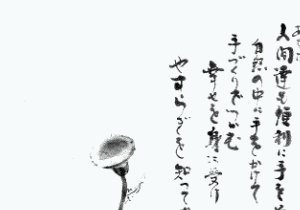 人間達も便利に手を
自然の中に手をかけて
手づくりでつつむ
幸せを身に受け
やすらぎを知って